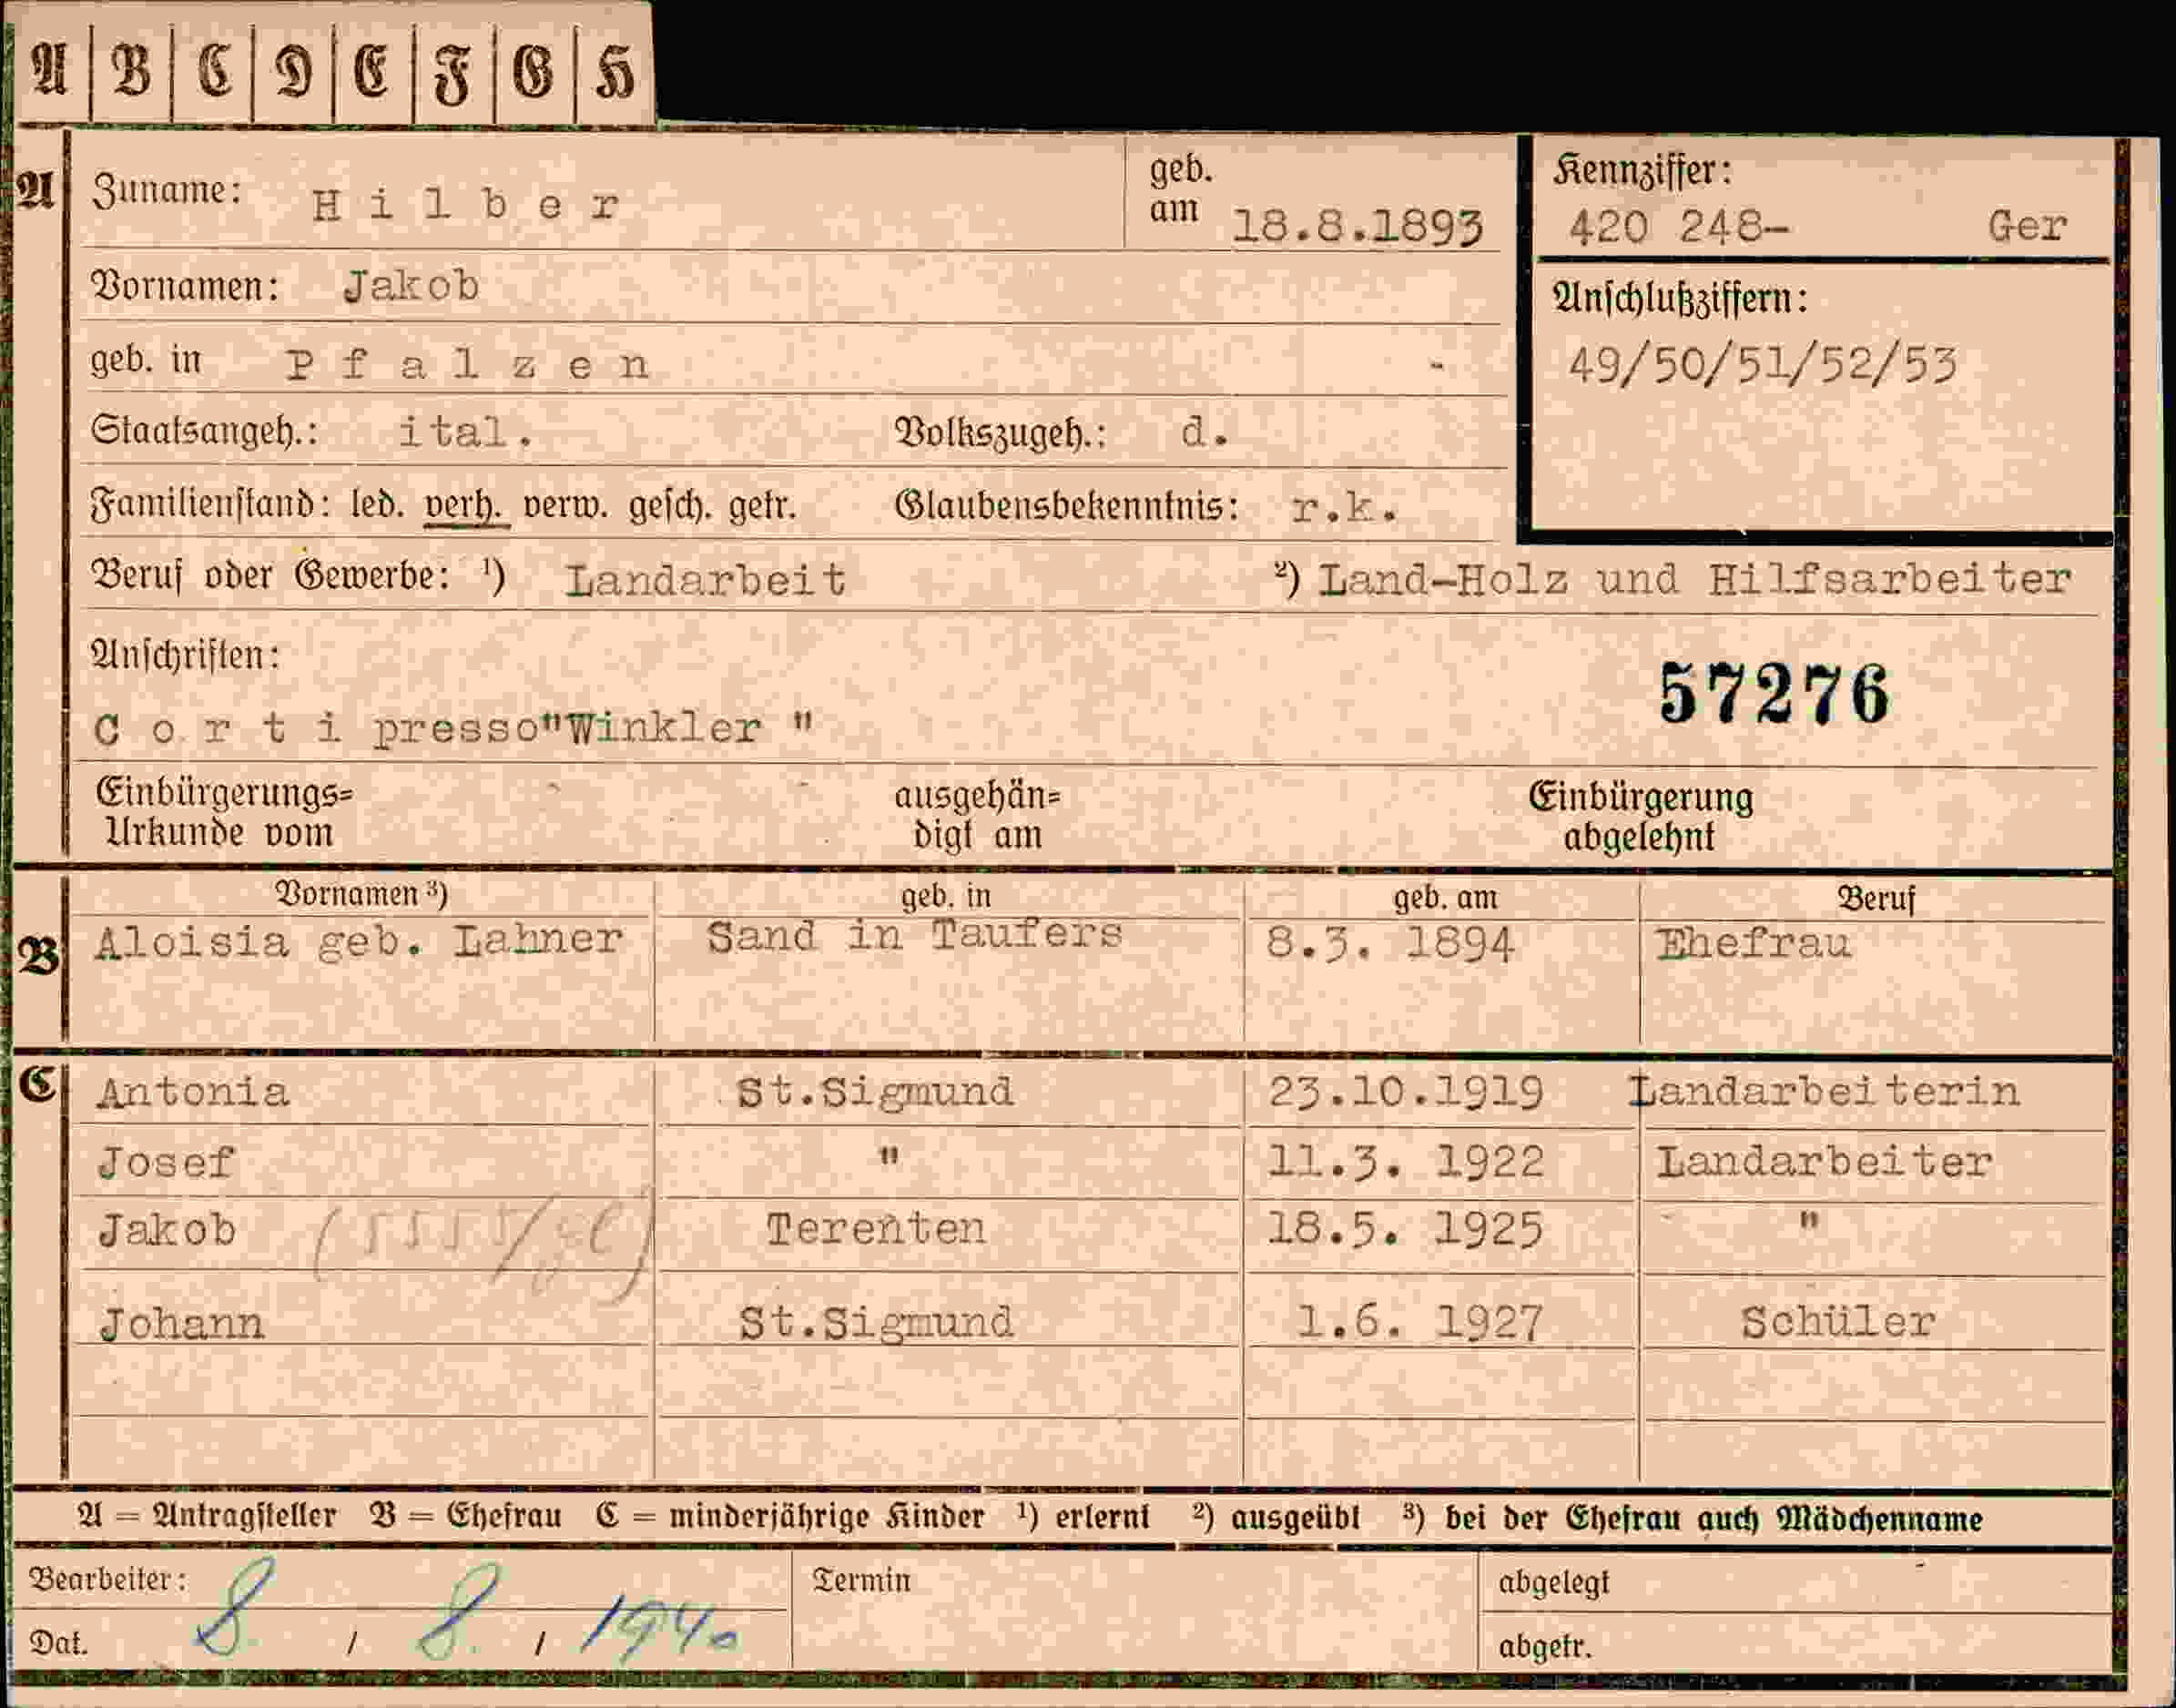 A B C D E F G H
A Zuname: Hilber geb. am 18.8.1893
Kennziffer:
420 248- Ger
Vornamen: Jakob
Anschlußziffern:
49/50/51/52/53
geb. in Pfalzen
Staatsangeh.: ital. Volkszugeh.: d.
Familienstand: led. verh. verw. gesch. getr. Glaubensbekenntnis: r.k.
Beruf oder Gewerbe: ¹) Landarbeit ²) Land-Holz und Hilfsarbeiter
Anschriften:
57276
Corti presso"Winkler "
Einbürgerungs= ausgehän= Einbürgerung
Urkunde vom digt am abgelehnt
Vornamen ³) geb. in geb. am Beruf
B Aloisia geb. Lahner Sand in Taufers 8.3. 1894 Ehefrau
C Antonia St.Sigmund 23.10.1919 Landarbeiterin
Josef " 11.3. 1922 Landarbeiter
Jakob Terenten 18.5. 1925 "
Johann St.Sigmund 1.6. 1927 Schüler
A = Antragsteller B = Ehefrau C = minderjährige Kinder ¹) erlernt ²) ausgeübt ³) bei der Ehefrau auch Mädchenname
Bearbeiter: Termin abgelegt
Dat. 8 / 8. / 1940 abgetr.